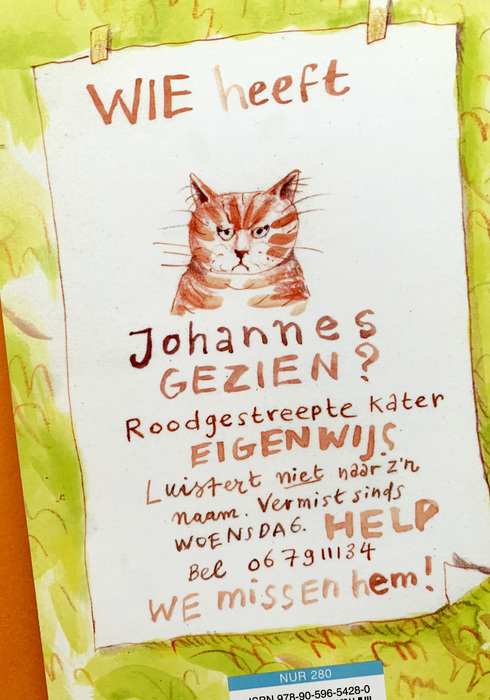 WIE heeft
Johannes
GEZIEN?
Roodgestreepte Kater
EIGENWIJS
Luistert niet naar z'n
naam. Vermist sinds
WOENSDAG. HELP
Bel 067911134
WE missen hem!
NUR 280
ISBN 978-90-596-5428-0